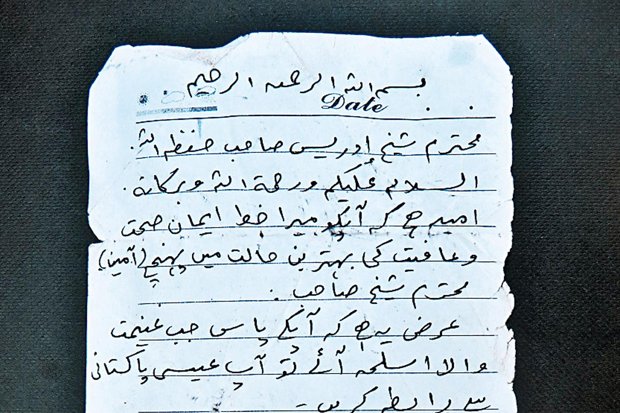 بسم اللہ الرحمٰن الرحیم
Date
محترم شیخ ادریس صاحب حفظہ اللہ
السلام علیکم ورحمۃ اللہ وبرکاتہ
امید ہے کہ آپکو میرا خط ایمان صحت
وعافیت کی بہترین حالت میں پہنچے (آمین)
محترم شیخ صاحب۔
عرض یہ ہے کہ آپکے پاس جب غنیمت
والا اسلحہ آئے تو آپ عیسی پاکستانی
سے رابطہ کریں۔